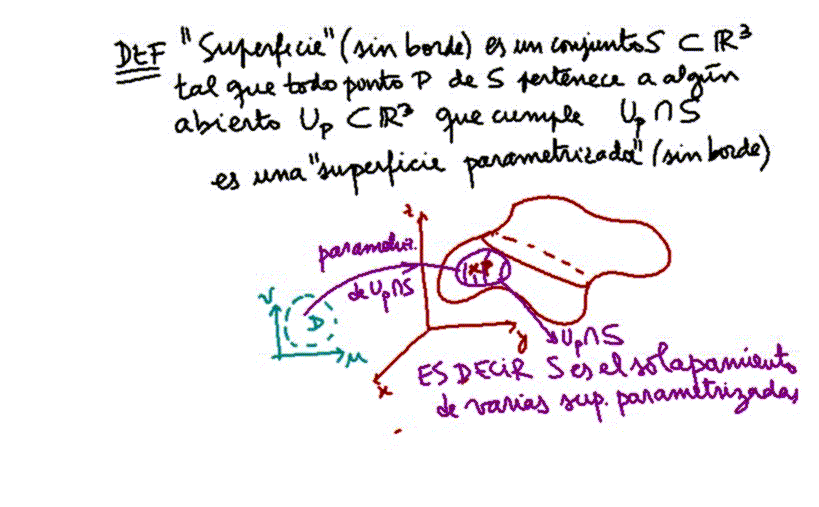 DEF "Superficie" (sin borde) es un conjunto S ⊂ ℝ³
tal que todo punto P de S pertenece a algún
abierto U_p ⊂ ℝ³ que cumple U_p ∩ S
es una "superficie parametrizada" (sin borde)
z
parametriz.
de U_p ∩ S
x P
v
D
u
y
x
U_p ∩ S
ES DECIR S es el solapamiento
de varias sup. parametrizadas